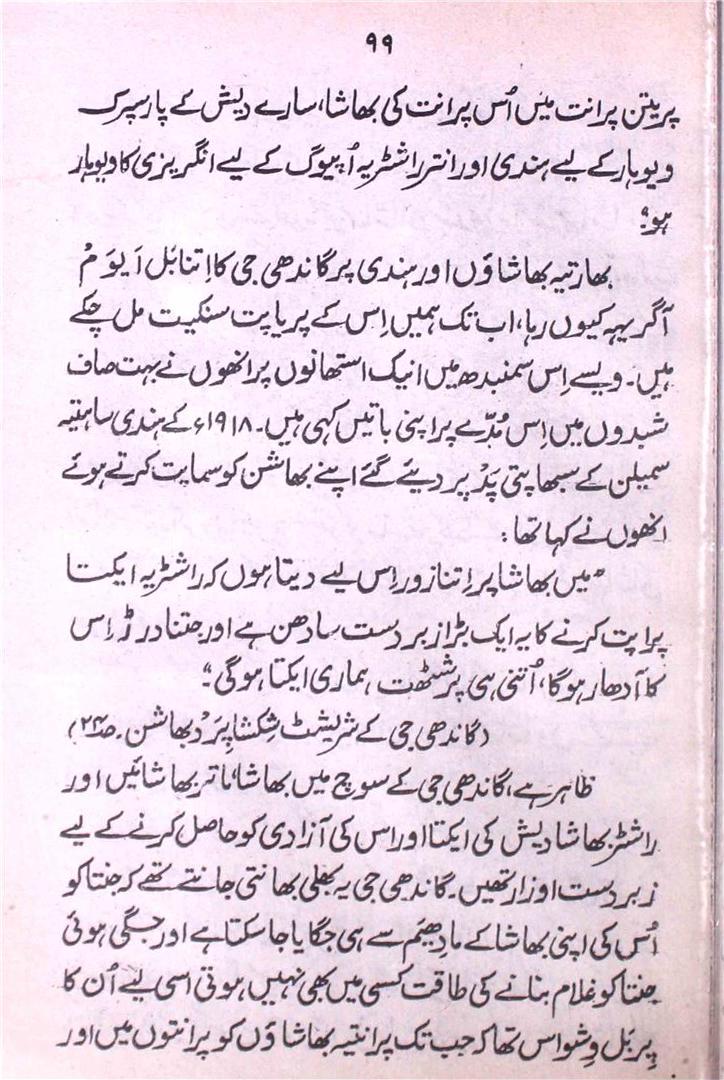 ۹۹
پریتن پرانت میں اُس پرانت کی بھاشا، سارے دیش کے پارسپرک
ویوہار کے لیے ہندی اور انتر راشٹریہ اُپیوگ کے لیے انگریزی کا ویوہار
ہو؟
بھارتیہ بھاشاؤں اور ہندی پر گاندھی جی کا اِتنا بَل اَیوَمْ
آگر یہہ کیوں رہا، اب تک ہمیں اِس کے پریاپت سنکیت مل چکے
ہیں۔ ویسے اِس سمنبدھ میں انیک استھانوں پر انھوں نے بہت صاف
شبدوں میں اِس مُدّے پر اپنی باتیں کہی ہیں۔ ۱۹۱۸ء کے ہندی ساہتیہ
سمیلن کے سبھاپتی پَدْ پر دیئے گئے اپنے بھاشن کو سماپت کرتے ہوئے
انھوں نے کہا تھا:
”میں بھاشا پر اِتنا زور اِس لیے دیتا ہوں کہ راشٹریہ ایکتا
پراپت کرنے کا یہ ایک بڑا زبردست سادھن ہے اور جتنا درڑ اِس
کا آدھار ہوگا، اُتنی ہی پرشٹھت ہماری ایکتا ہوگی“۔
(گاندھی جی کے شریشٹ شِکشاپرَدْ بھاشن۔ صـ۲۴)
ظاہر ہے، گاندھی جی کے سوچ میں بھاشا‘ ماتر بھاشائیں اور
راشٹر بھاشا دیش کی ایکتا اور اس کی آزادی کو حاصل کرنے کے لیے
زبردست اوزار تھیں۔ گاندھی جی یہ بھلی بھانتی جانتے تھے کہ جنتا کو
اُس کی اپنی بھاشا کے مادھیَم سے ہی جگایا جا سکتا ہے اور جگی ہوئی
جنتا کو غلام بنانے کی طاقت کسی میں بھی نہیں ہوتی اسی لیے اُن کا
پربَل وِشواس تھا کہ جب تک پرانتیہ بھاشاؤں کو پرانتوں میں اور